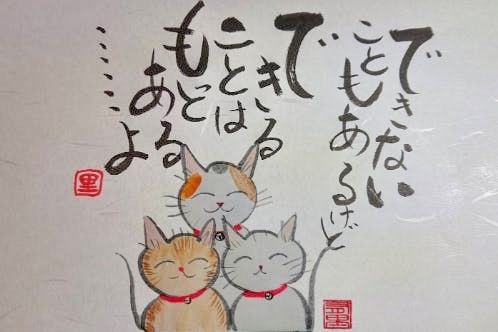 できない
こともあるけど
で
きる
ことは
もっと
あるよ
……
里